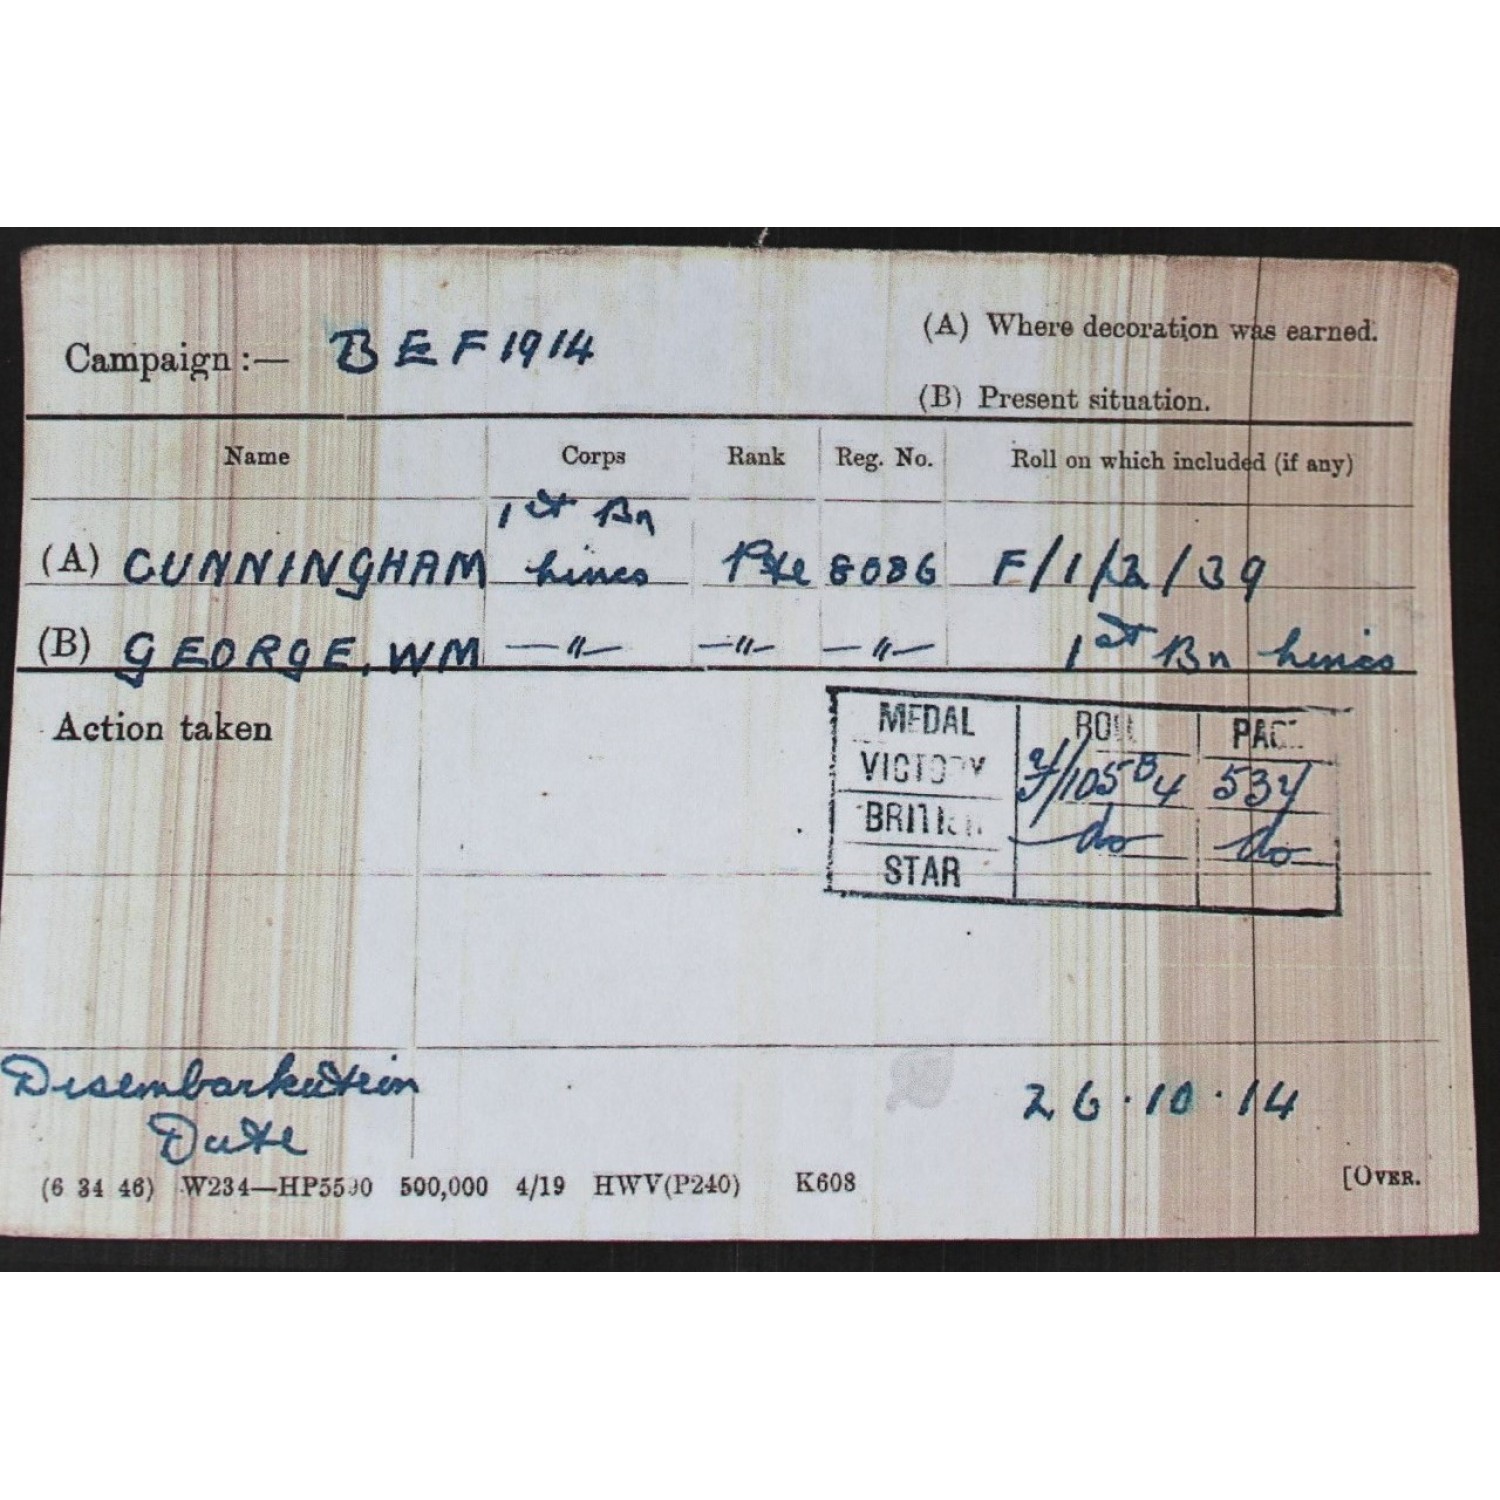 Campaign :— B E F 1914
(A) Where decoration was earned.
(B) Present situation.
Name Corps Rank Reg. No. Roll on which included (if any)
1st Bn
(A) CUNNINGHAM Lincs Pte 8086 F/1/2/39
(B) GEORGE, WM —"— —"— —"— 1st Bn Lincs
Action taken
MEDAL ROLL PAGE
VICTORY /105 B4 537
BRITISH do do
STAR
Disembarkation 26.10.14
Date
(6 34 46) W234—HP5590 500,000 4/19 HWV(P240) K608 [OVER.